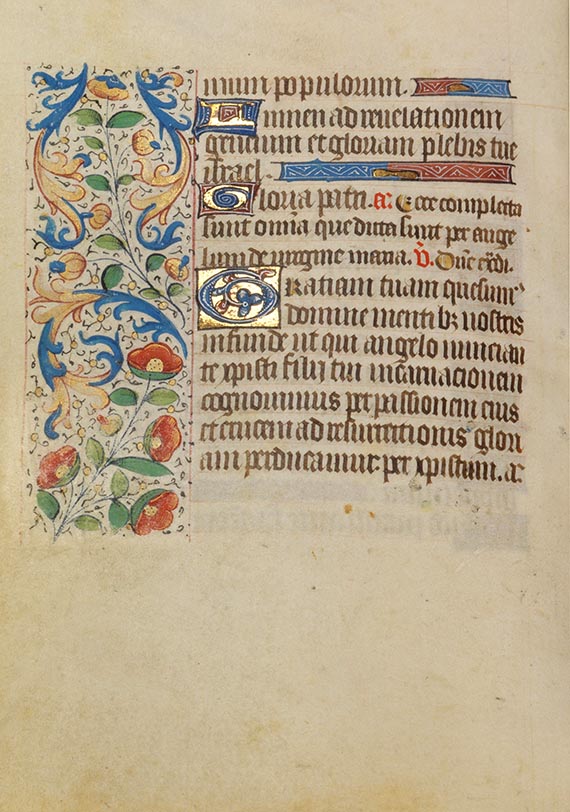 mum populorum.
Lumen ad reuelationem
gencium et gloriam plebis tue
israel.
Gloria patri. a. Ecce completa
sunt omīa que dicta sunt per ange
lum de uirgine maria. v. Dn̄e exādi.
Gratiam tuam quesumꝰ
domine mentibꝫ nostris
infunde ut qui angelo nuncian
te xp̄isti filij tui incarnacionem
cognouimus per passionem eius
et crucem ad resurrectionis glori
am perducamur. per xp̄istum. a.